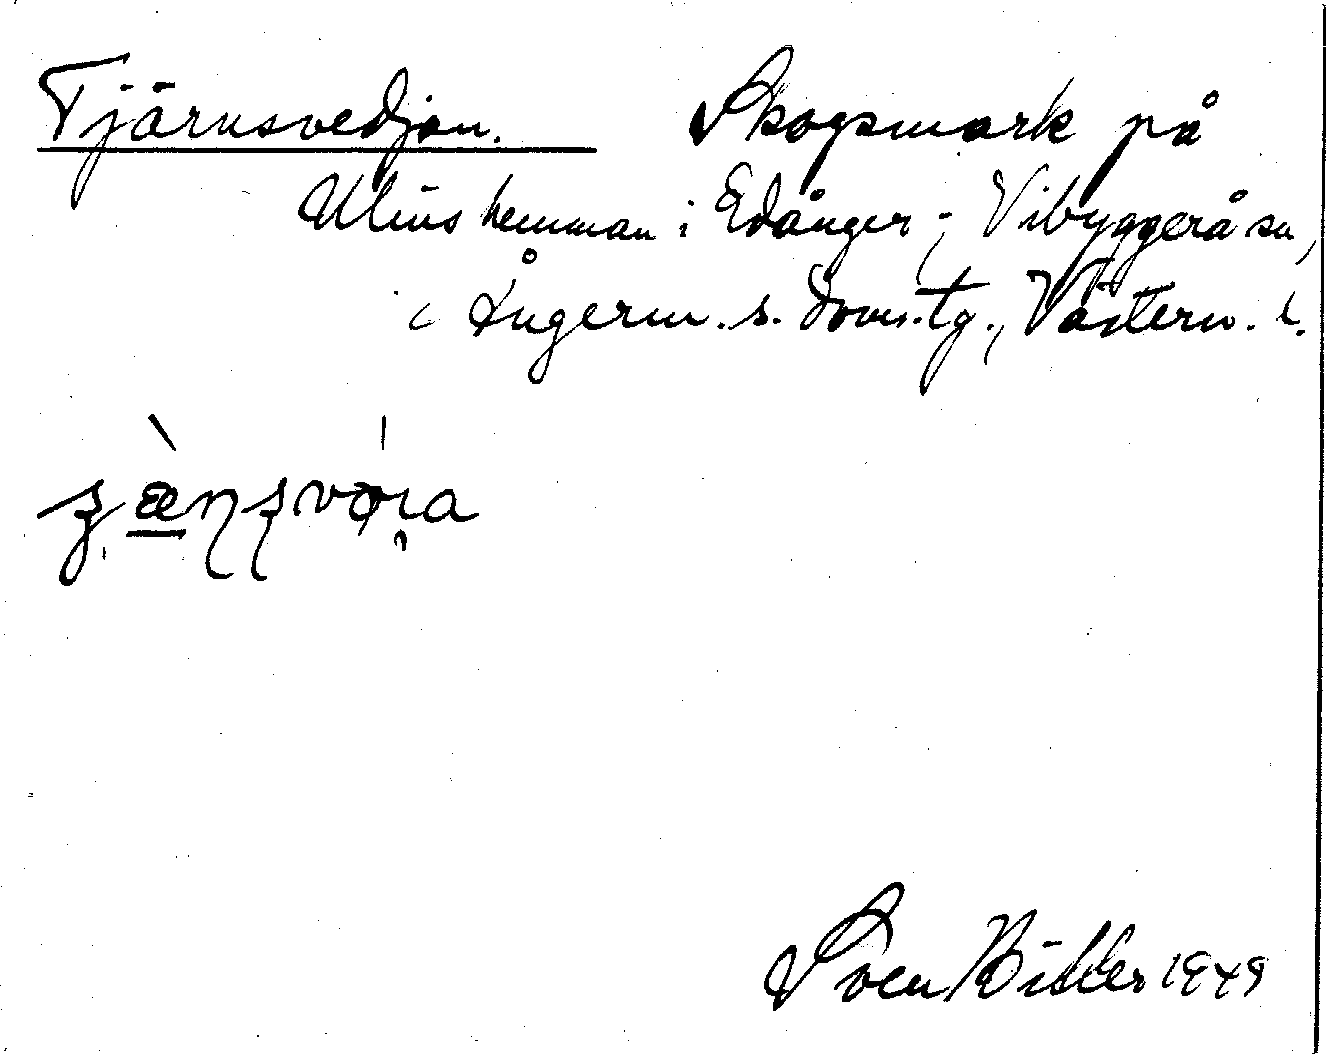 Tjärnsvedjan. Skogsmark på
Ulins hemman i Edånger i Vibyggerå sn,
i Ångerm. s. doms.tg., Västern. l.
Sven Bibler 1949